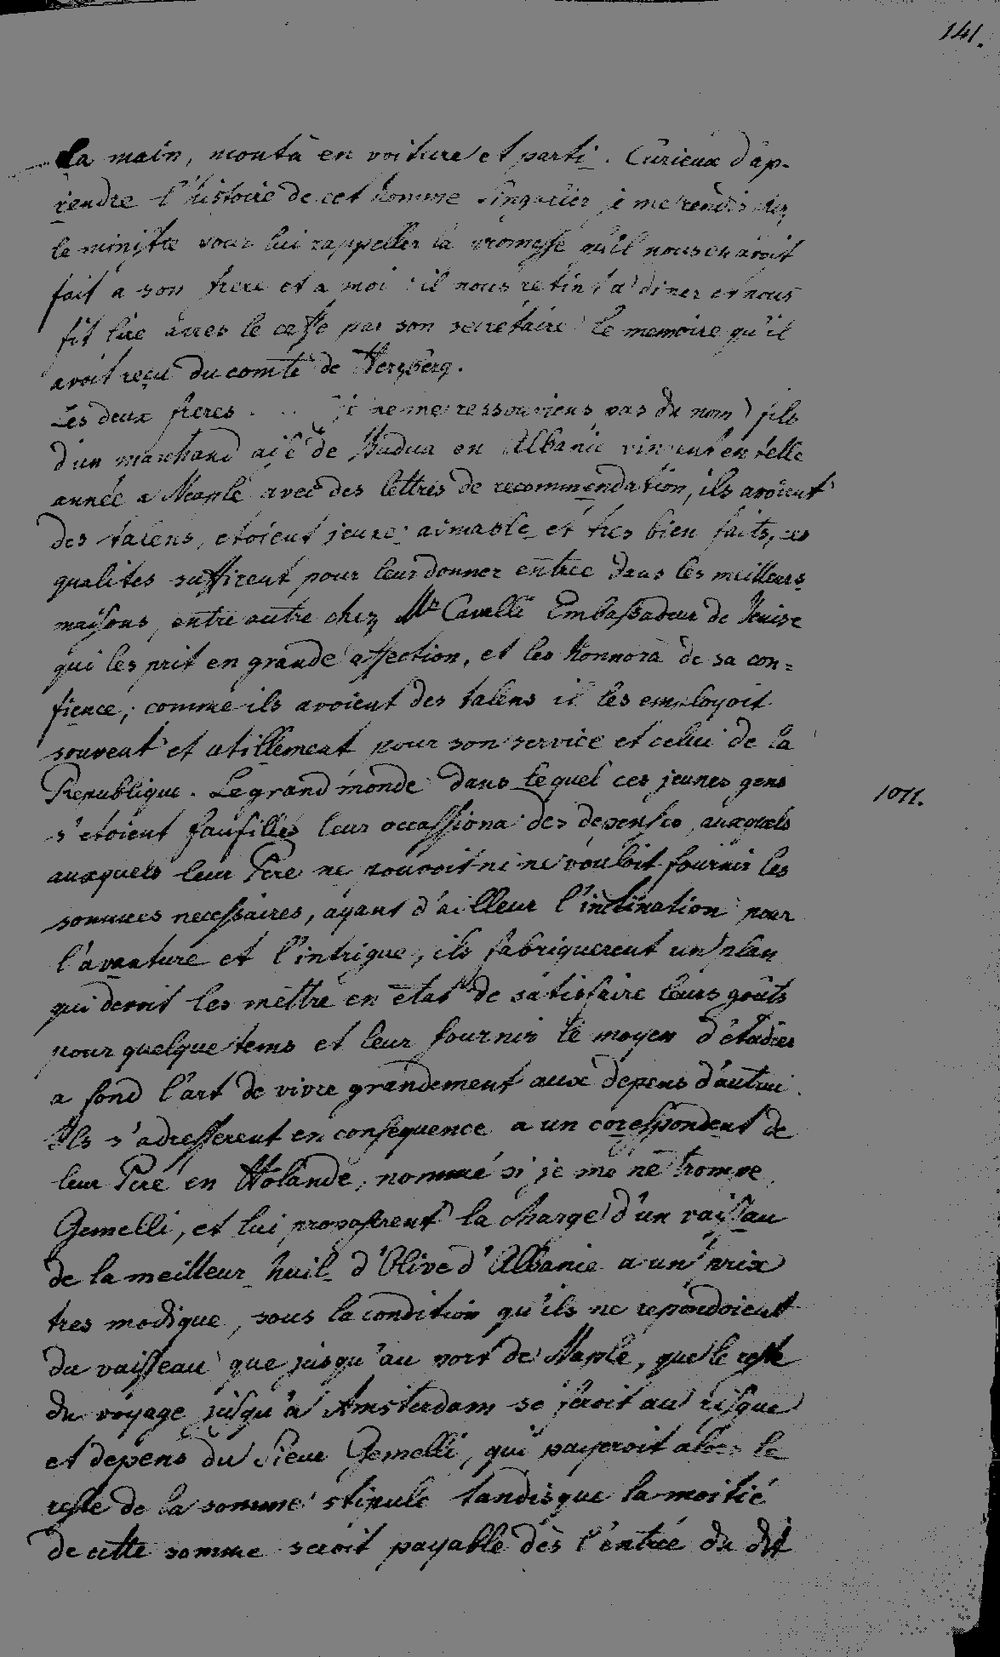 141.
la main, monta en voiture et parti. Curieux d'ap-
rendre l'histoire de cet homme singulier je me rendis chez
le ministre pour lui rappeller la promesse qu'il nous en avoit
fait a son frere et a moi : il nous retint a diner et nous
fit lire apres le caffe par son secretaire le memoire qu'il
avoit reçu du comte de Herzberg.
Les deux freres . . . (je ne me ressouviens pas du nom) fils
d'un marchand aisé de Budua en Albanie vinrent en telle
année a Naple avec des lettres de recommendation, ils avoient
des talens, etoient jeune aimable et tres bien faits, ces
qualites suffirent pour leur donner entrée dans les meilleurs
maisons, entre autre chez Mr Cavalli Embassadeur de Venise
qui les prit en grande affection, et les honnora de sa con=
fience; comme ils avoient des talens il les employoit
souvent et utillement pour son service et celui de la
Republique. Le grand monde dans lequel ces jeunes gens
s'etoient faufilles leur occassiona des depenses, auxquels
1011.
auxquels leur Pere ne pouvoit ni ne vouloit fournir les
sommes necessaires, ayant d'ailleur l'inclination pour
l'avanture et l'intrigue, ils fabriquerent un plan
qui devoit les mettre en etat de satisfaire leurs goûts
pour quelque tems et leur fournir le moyen d'étudier
a fond l'art de vivre grandement aux depens d'autrui.
Ils s'adresserent en consequence a un corespondent de
leur Pere en Holande, nommé si je me ne trompe
Gemelli, et lui proposerent la charge d'un vaissau
de la meilleur huil d'Olive d'Albanie a un prix
tres modique, sous la condition qu'ils ne repondoient
du vaisseau que jusqu'au port de Naple, que le reste
du voyage jusqu'a Amsterdam se feroit au risque
et depens du Sieur Gemelli, qui payeroit alors le
reste de la somme stipulé tandisque la moitié
de cette somme seroit payable dès l'entrée du dit